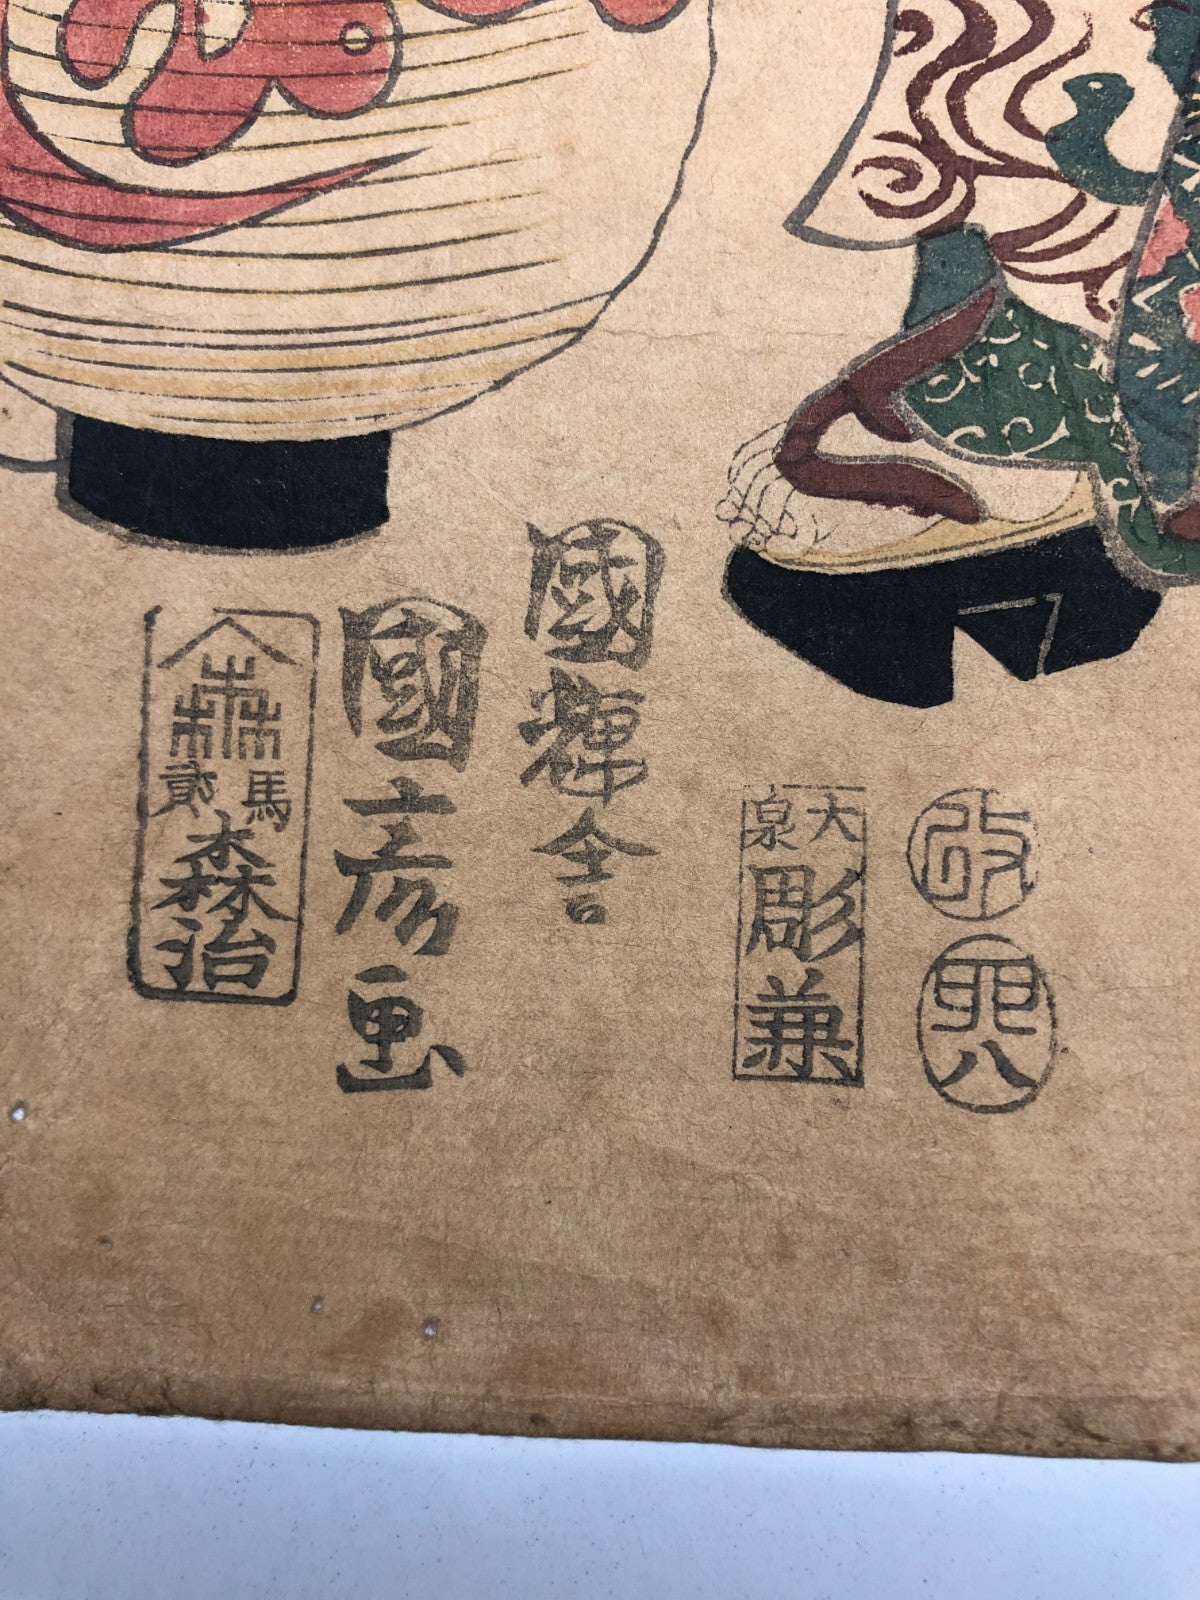 改
丣八
大泉
彫兼
國輝舎
國彦画
馬貮
森治